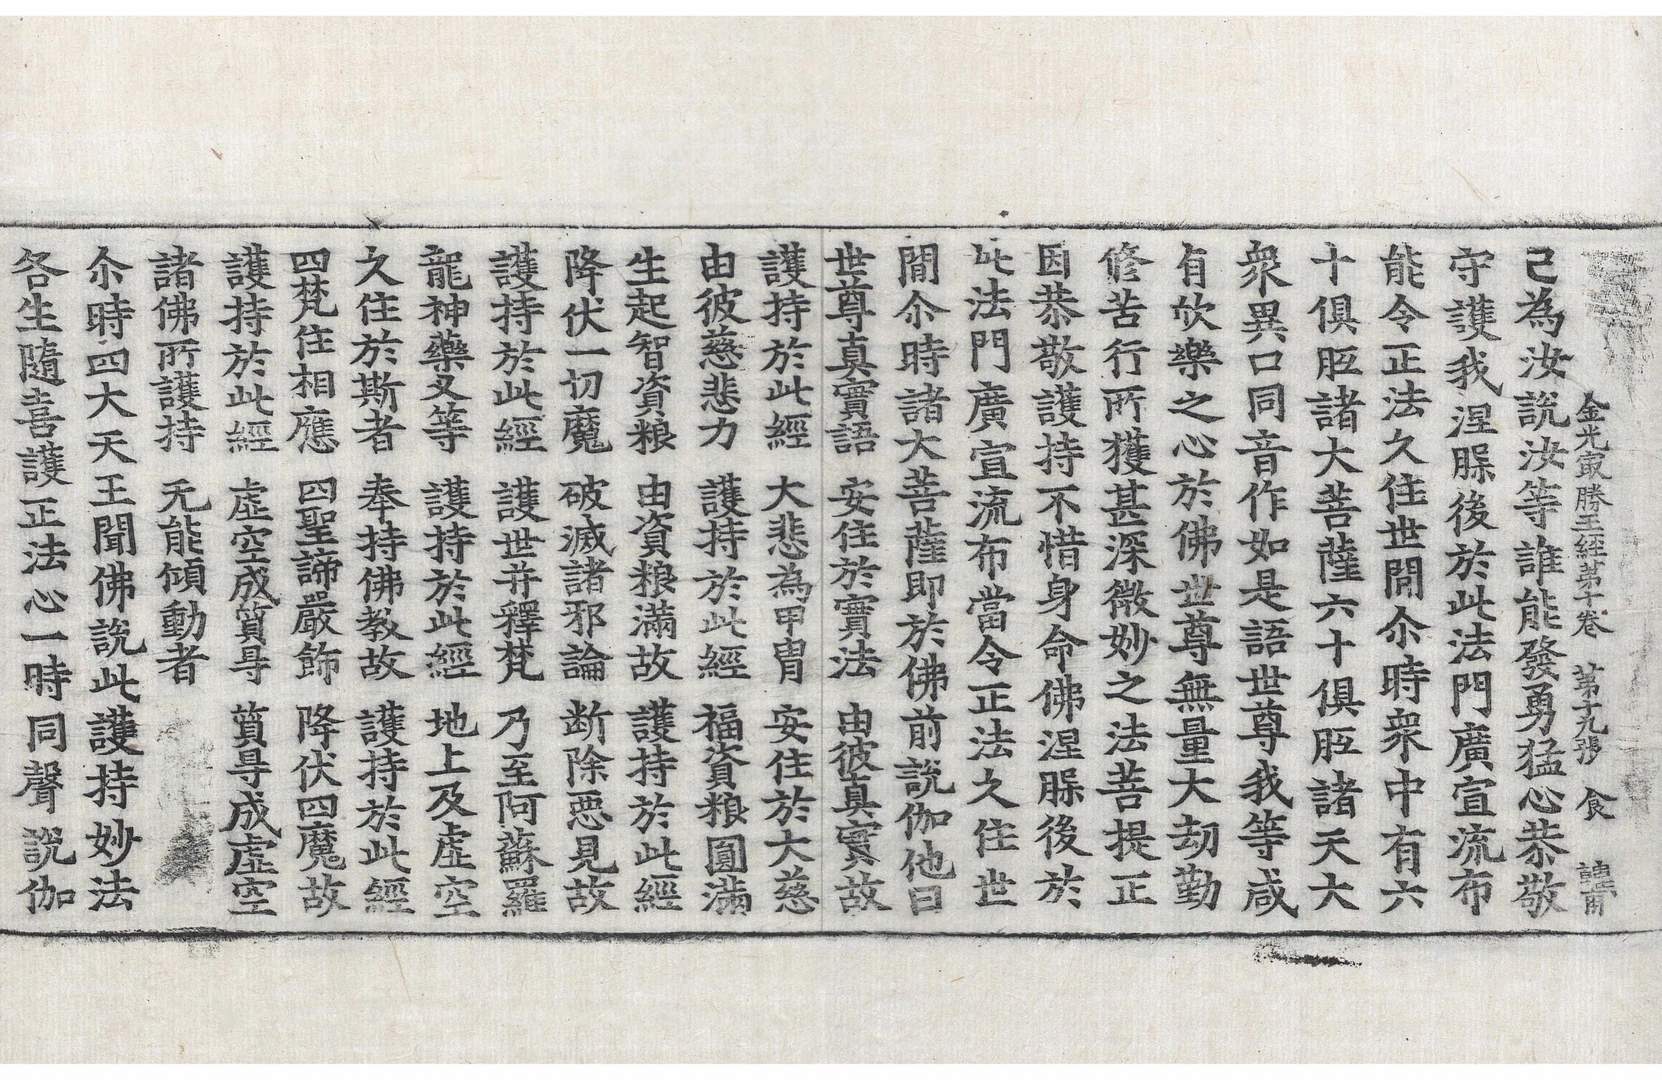 金光㝡勝王經苐十卷　苐十九張　食
己為汝說汝等誰能發勇猛心恭敬
守護我涅脲後於此法門廣宣流布
能令正法久住世閒尒時衆中有六
十俱胝諸大菩薩六十俱胝諸天大
衆異口同音作如是語世尊我等咸
有欣樂之心於佛世尊無量大劫勤
修苦行所獲甚深微妙之法菩提正
因恭敬護持不惜身命佛涅脲後於
此法門廣宣流布當令正法久住世
閒尒時諸大菩薩即於佛前說伽他曰
世尊真實語　安住於實法　由彼真實故
護持於此經　大悲為甲胄　安住於大慈
由彼慈悲力　護持於此經　福資粮圓滿
生起智資粮　由資粮滿故　護持於此經
降伏一切魔　破滅諸邪論　断除惡見故
護持於此經　護世并釋梵　乃至阿蘇羅
龍神藥叉等　護持於此經　地上及虛空
久住於斯者　奉持佛教故　護持於此經
四梵住相應　四聖諦嚴飾　降伏四魔故
護持於此經　虛空成質㝵　質㝵成虛空
諸佛所護持　无能傾動者
尒時四大天王聞佛說此護持妙法
各生隨喜護正法心一時同聲說伽